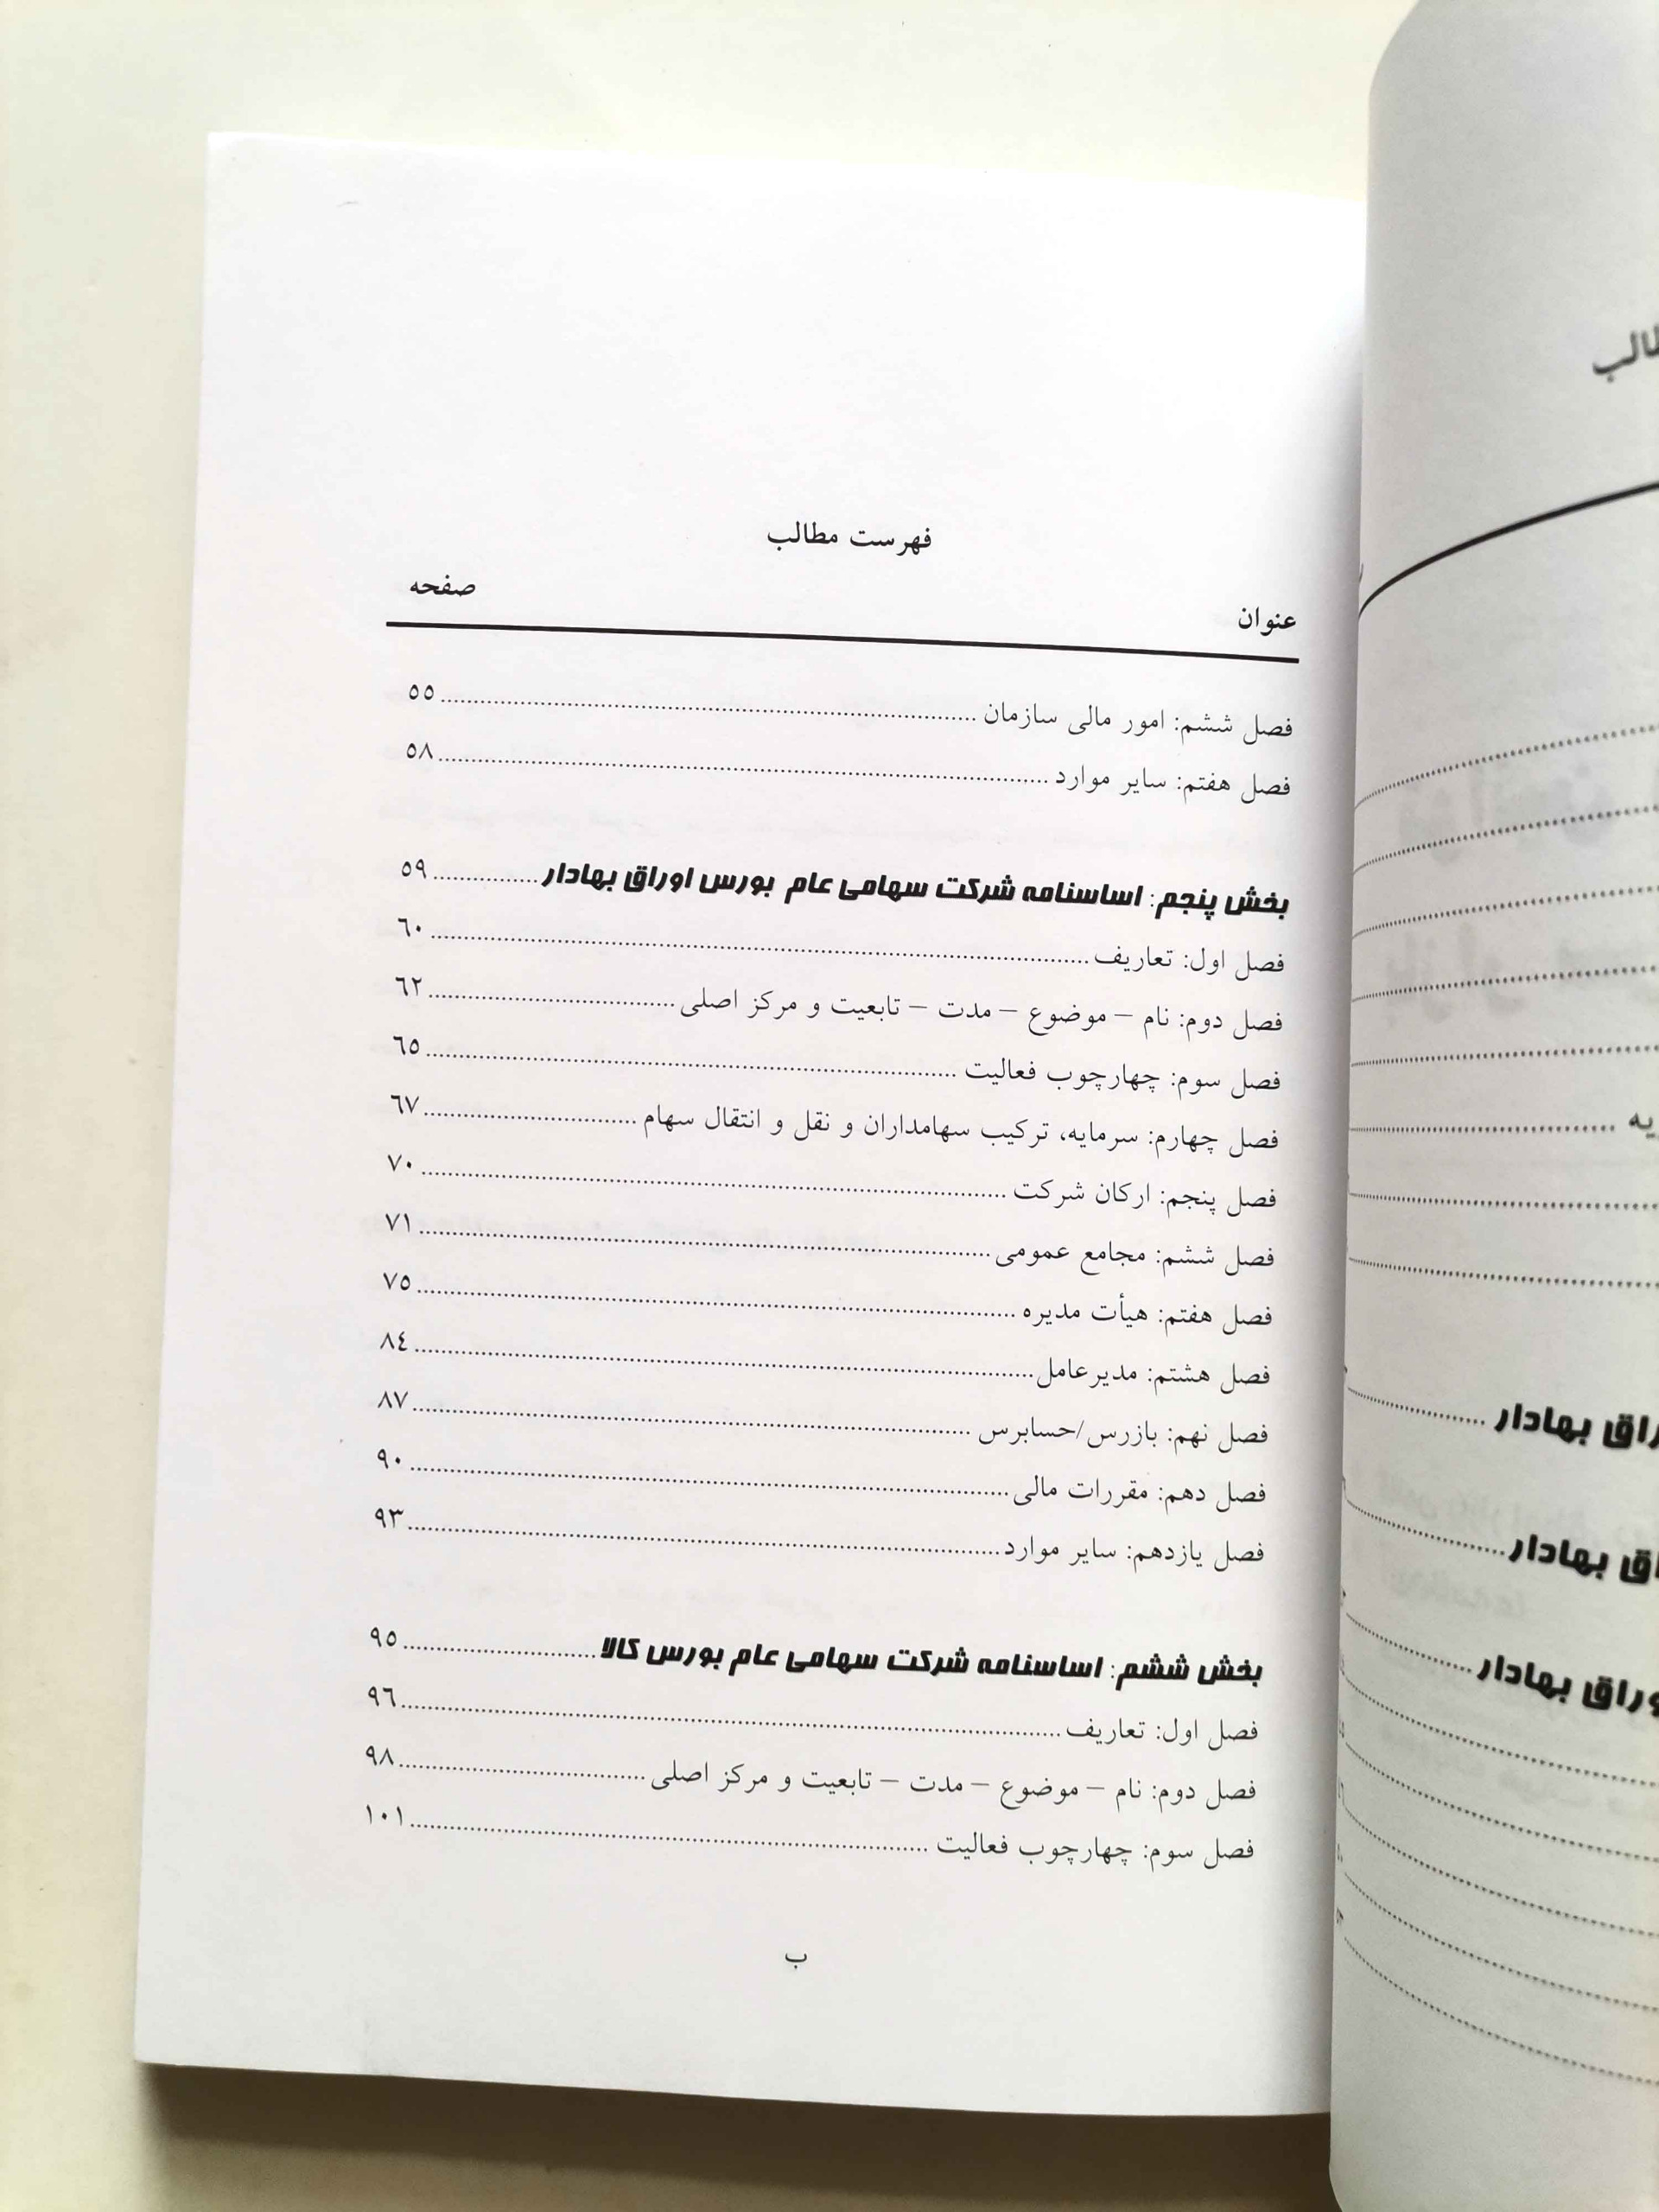 فهرست مطالب
عنوان صفحه
فصل ششم: امور مالی سازمان ........ ٥٥
فصل هفتم: سایر موارد ........ ٥٨
بخش پنجم: اساسنامه شرکت سهامی عام بورس اوراق بهادار ........ ٥٩
فصل اول: تعاریف ........ ٦٠
فصل دوم: نام – موضوع – مدت – تابعیت و مرکز اصلی ........ ٦٢
فصل سوم: چهارچوب فعالیت ........ ٦٥
فصل چهارم: سرمایه، ترکیب سهامداران و نقل و انتقال سهام ........ ٦٧
فصل پنجم: ارکان شرکت ........ ٧٠
فصل ششم: مجامع عمومی ........ ٧١
فصل هفتم: هیأت مدیره ........ ٧٥
فصل هشتم: مدیرعامل ........ ٨٤
فصل نهم: بازرس/حسابرس ........ ٨٧
فصل دهم: مقررات مالی ........ ٩٠
فصل یازدهم: سایر موارد ........ ٩٣
بخش ششم: اساسنامه شرکت سهامی عام بورس کالا ........ ٩٥
فصل اول: تعاریف ........ ٩٦
فصل دوم: نام – موضوع – مدت – تابعیت و مرکز اصلی ........ ٩٨
فصل سوم: چهارچوب فعالیت ........ ١٠١
ب
بهادار
بهادار
اوراق بهادار